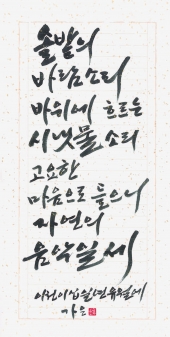 솔밭의
바람소리
바위에 흐르는
시냇물 소리
고요한
마음으로 들으니
자연의
음악일세
이천이십일년 유월에
가은